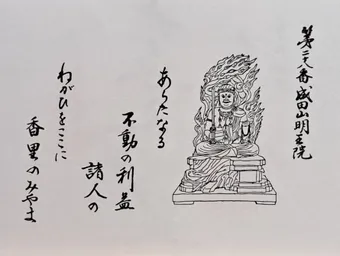 第二八番成田山明王院
あらたなる
不動の利益
諸人の
わがひをここに
香里のみやま